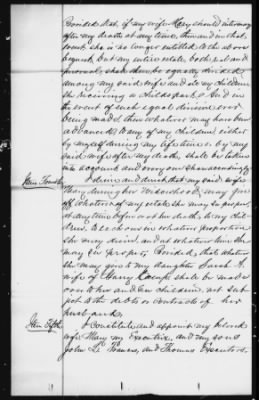 Provided that if my wife Mary should intermarry
after my death at any time, then and in that
event she is no longer entitled to the above
bequest, but my entire estate, both real and
personal, shall then be equally divided
among my said wife and all my children
she receiving a child's part. And in
the event of such equal division ever
being made, then whatever may have been
advanced to any of my children either
by myself during my life time or by my
said wife after my death, shall be taken
into account and every one share accordingly
Item Fourth I desire and direct that my said wife
Mary during her widowhood may give
of whatever of my estate she may see proper
at any time before or at her death to my chil-
dren, to whom or in whatever proportion
she may desire, and at whatever time she
may see proper, Provided, that whatever
she may give to my daughter Sarah
wife of Harry shall be made
over to her and her children, not sub-
ject to the debts or contracts of her
husband.
Item Fifth I constitute and appoint my beloved
wife Mary my Executrix, and my sons
John and Thomas Executors.